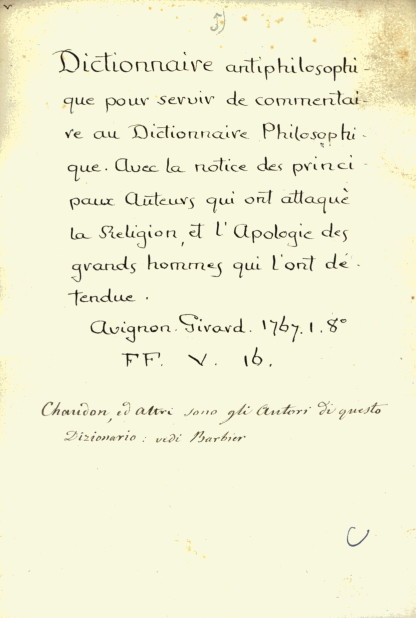 5)
Dictionnaire antiphilosophi-
que pour servir de commentai-
re au Dictionnaire Philosophi-
que. Avec la notice des princi-
paux Auteurs qui ont attaquè
la Religion, et l'Apologie des
grands hommes qui l'ont dé-
fendue.
Avignon. Girard. 1767. 1. 8°
FF. V. 16.
Chaudon, ed altri sono gli Autori di questo
Dizionario: vedi Barbier
C